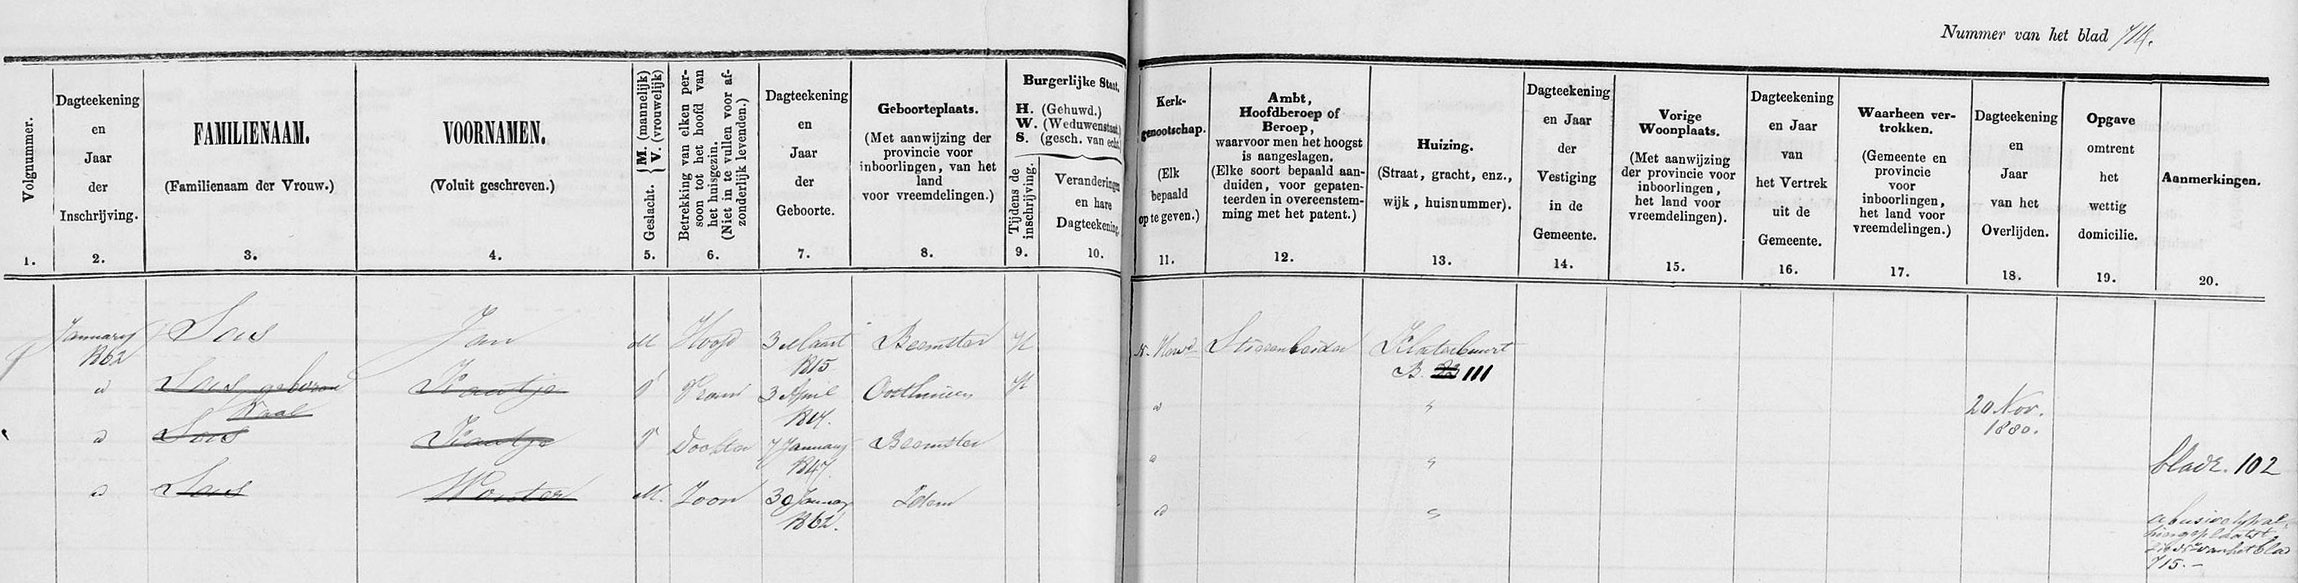 Nummer van het blad 714.
Volgnummer.
1.
Dagteekening
en
Jaar
der
Inschrijving.
2.
FAMILIENAAM.
(Familienaam der Vrouw.)
3.
VOORNAMEN.
(Voluit geschreven.)
4.
Geslacht. { M. (mannelijk)
V. (vrouwelijk)
5.
Betrekking van elken per-
soon tot het hoofd van
het huisgezin.
(Niet in te vullen voor af-
zonderlijk levenden.)
6.
Dagteekening
en
Jaar
der
Geboorte.
7.
Geboorteplaats.
(Met aanwijzing der
provincie voor
inboorlingen, van het
land
voor vreemdelingen.)
8.
Burgerlijke Staat.
H. (Gehuwd.)
W. (Weduwenstaat.)
S. (gesch. van echt.)
Tijdens de
inschrijving.
9.
Veranderingen
en hare
Dagteekening.
10.
Kerk-
genootschap.
(Elk
bepaald
op te geven.)
11.
Ambt,
Hoofdberoep of
Beroep,
waarvoor men het hoogst
is aangeslagen.
(Elke soort bepaald aan-
duiden, voor gepaten-
teerden in overeenstem-
ming met het patent.)
12.
Huizing.
(Straat, gracht, enz.,
wijk, huisnummer).
13.
Dagteekening
en Jaar
der
Vestiging
in de
Gemeente.
14.
Vorige
Woonplaats.
(Met aanwijzing
der provincie voor
inboorlingen,
het land voor
vreemdelingen).
15.
Dagteekening
en Jaar
van
het Vertrek
uit de
Gemeente.
16.
Waarheen ver-
trokken.
(Gemeente en
provincie
voor
inboorlingen,
het land voor
vreemdelingen.)
17.
Dagteekening
en
Jaar
van het
Overlijden.
18.
Opgave
omtrent
het
wettig
domicilie.
19.
Aanmerkingen.
20.
January
1862
Sas
Jan
M
Hoofd
3 Maart
1815
Beemster
H
N. Herv
B. 111
d
Sas geboren
Kaal
Trantje
V
Vrouw
3 April
Oosthuizen
H
d
"
20 Nov.
1880.
d
Sas
Trantje
V
Dochter
7 January
1847
Beemster
d
"
bladz. 102
d
Sas
Wouter
M.
Zoon
30 January
1862.
Idem
d
"
abusievelyk al
hier geplaatst
van het blad
715.-